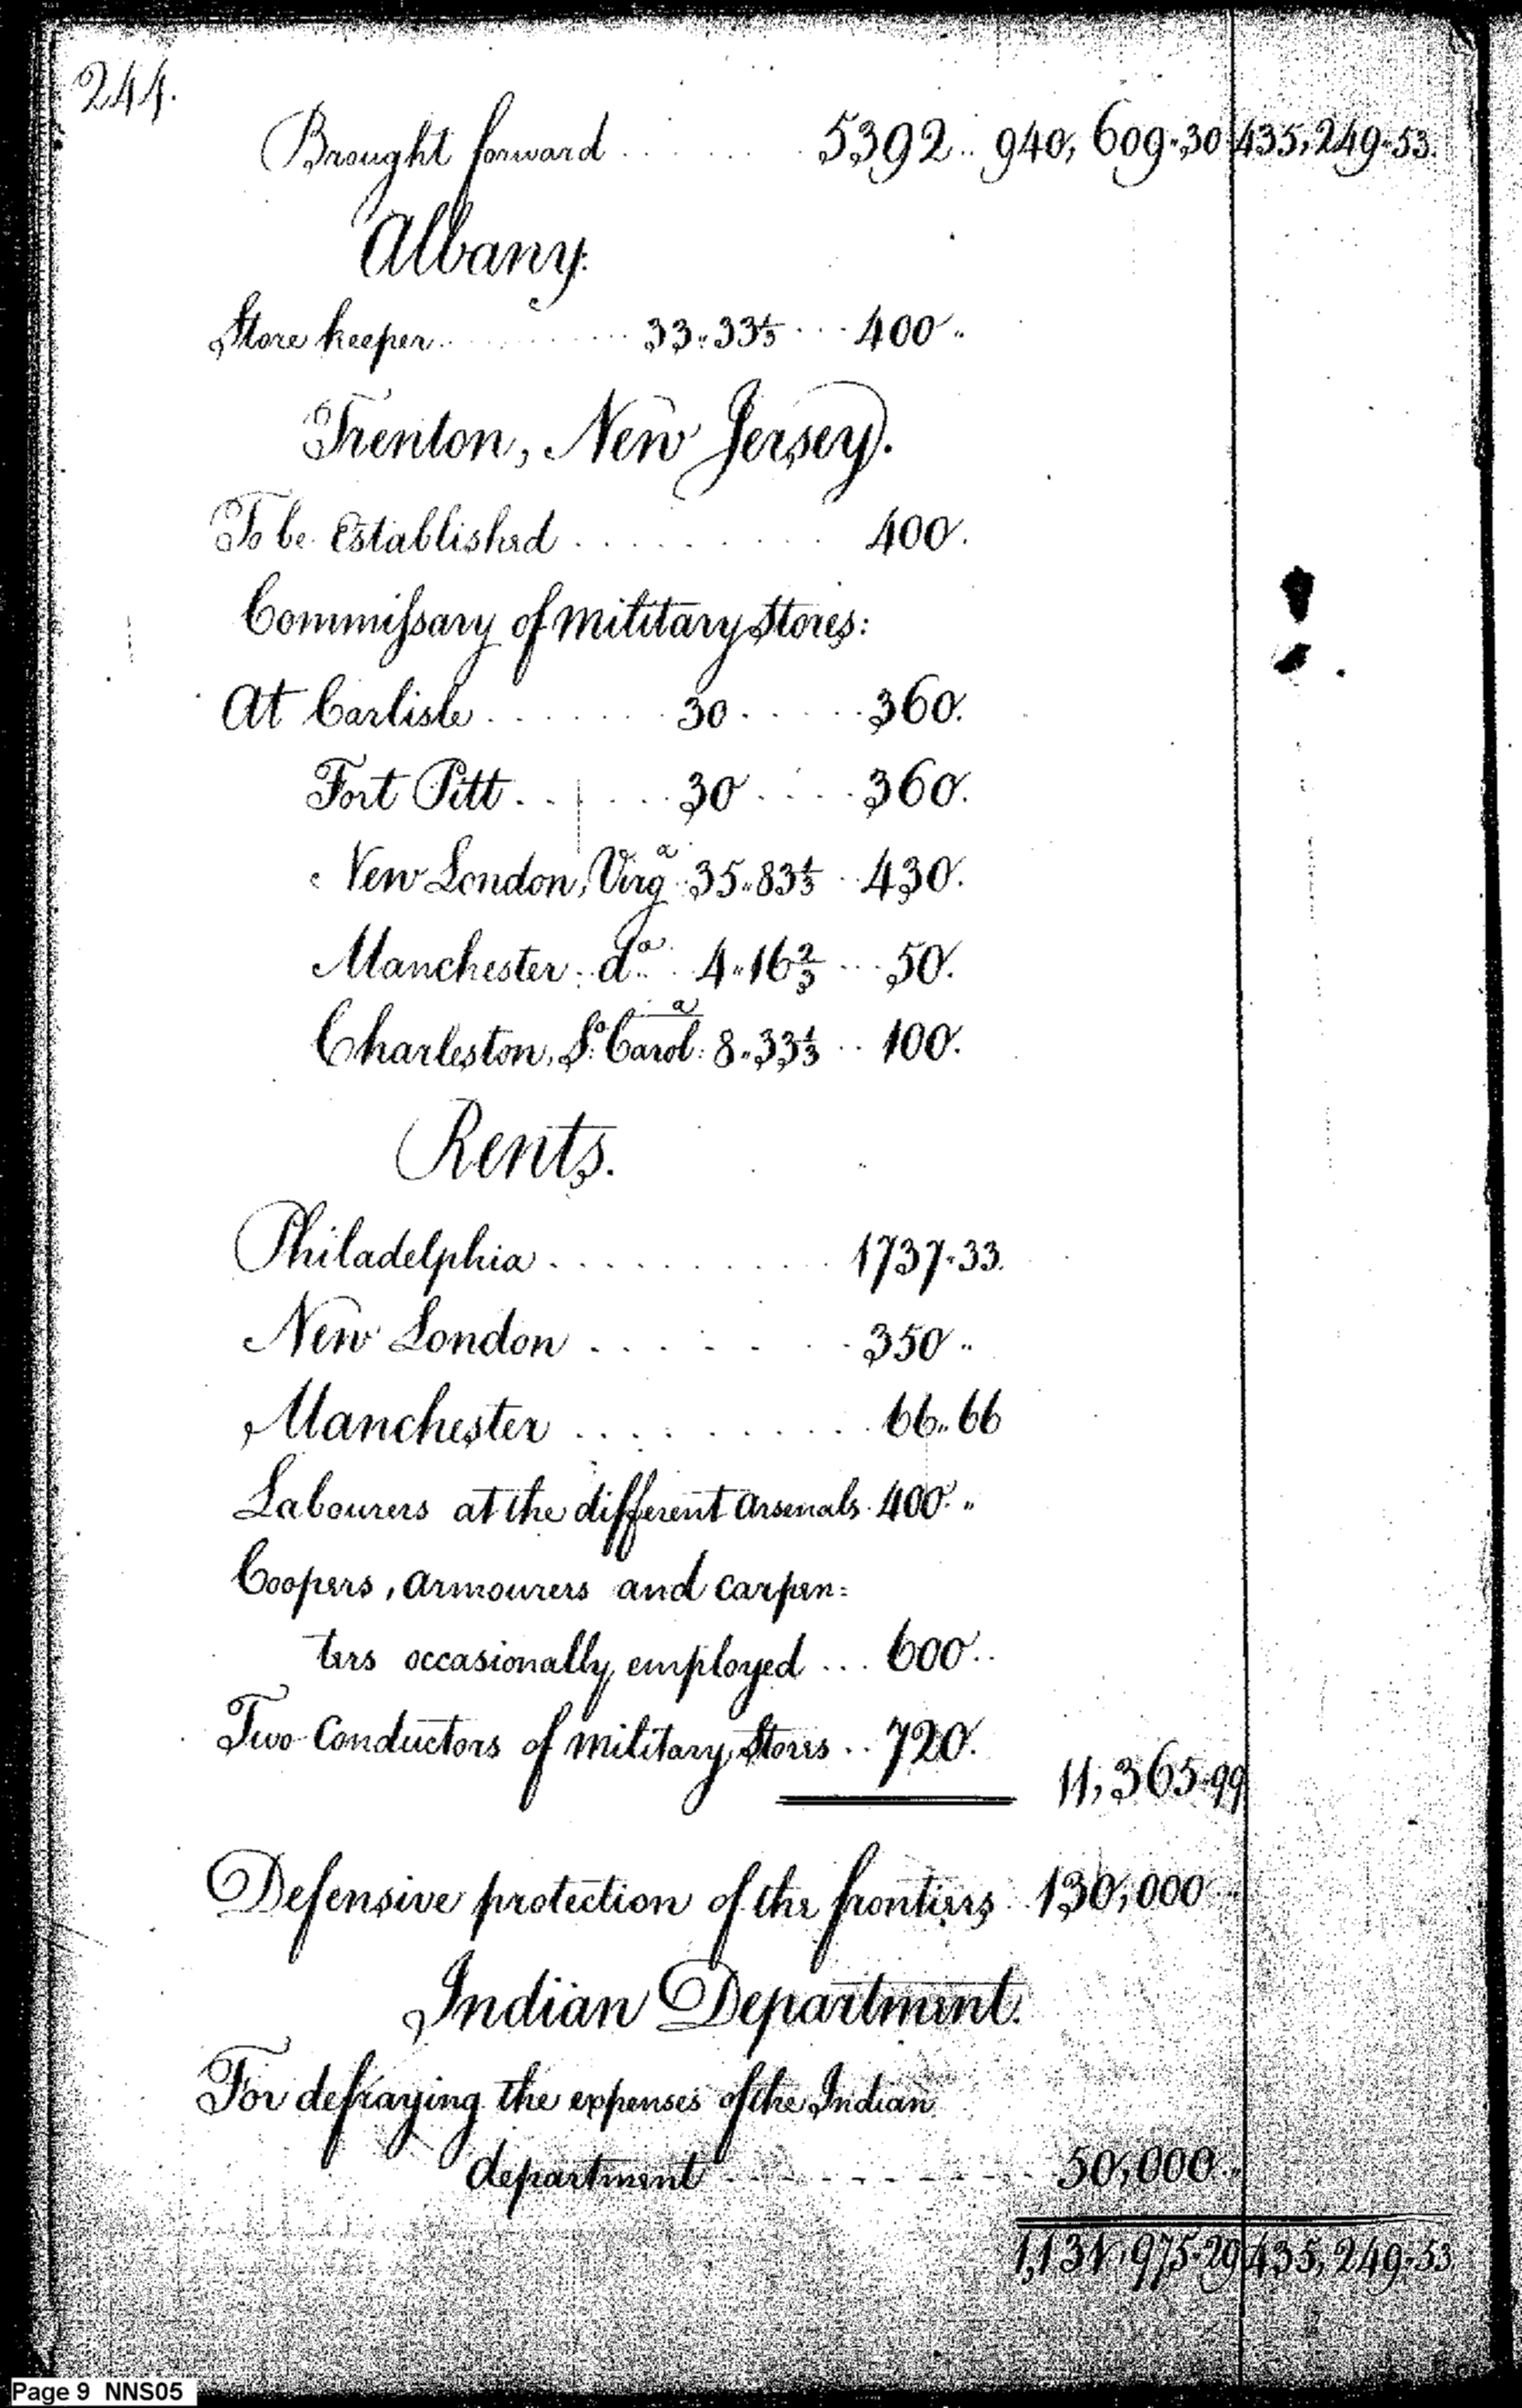 244.
Brought forward ...... 5392.. 940,609.30 435,249.53.
Albany.
Store keeper ........ 33..33⅓ ... 400..
Trenton, New Jersey.
To be Established ......... 400.
Commissary of military Stores:
At Carlisle ....... 30 ..... 360.
Fort Pitt ...... 30 ..... 360.
New London, Virgᵃ. 35..83⅓ .. 430.
Manchester. dᵒ. 4..16⅔ ... 50.
Charleston, Sᵒ. Carolᵃ: 8..33⅓ .. 100.
Rents.
Philadelphia .......... 1737.33.
New London ....... 350..
Manchester .......... 66..66
Labourers at the different arsenals. 400..
Coopers, armourers and carpen=
ters occasionally employed ... 600..
Two Conductors of military Stores .. 720.
11,365.99
Defensive protection of the frontiers. 130,000..
Indian Department.
For defraying the expenses of the Indian
department ......... 50,000..
1,131,975.29 435,249.53
Page 9 NNS05